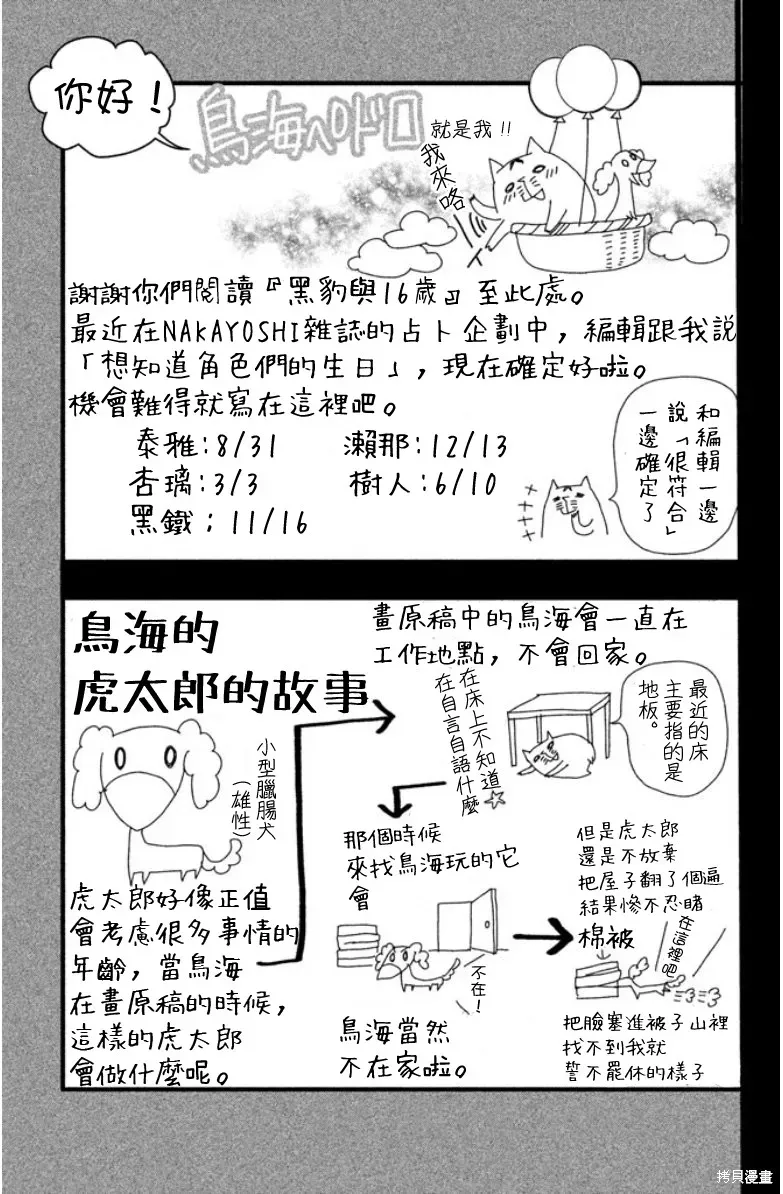 你好！
鳥海ペドロ
就是我!!
我來咯
謝謝你們閱讀『黑豹與16歲』至此處。
最近在NAKAYOSHI雜誌的占卜企劃中，編輯跟我說
「想知道角色們的生日」，現在確定好啦。
機會難得就寫在這裡吧。
泰雅:8/31
瀨那:12/13
杏璃:3/3
樹人:6/10
黑鐵；11/16
和編輯一邊
說「很符合」
一邊確定了
鳥海的
虎太郎的故事
小型臘腸犬
(雄性)
虎太郎好像正值
會考慮很多事情的
年齡，當鳥海
在畫原稿的時候，
這樣的虎太郎
會做什麼呢。
畫原稿中的鳥海會一直在
工作地點，不會回家。
在床上不知道
在自言自語什麼☆
最近的床
主要指的是
地板。
那個時候
來找鳥海玩的它
會
不在！
鳥海當然
不在家啦。
但是虎太郎
還是不放棄
把屋子翻了個遍
結果慘不忍睹
棉被
在這裡吧
把臉塞進被子山裡
找不到我就
誓不罷休的樣子
拷貝漫畫